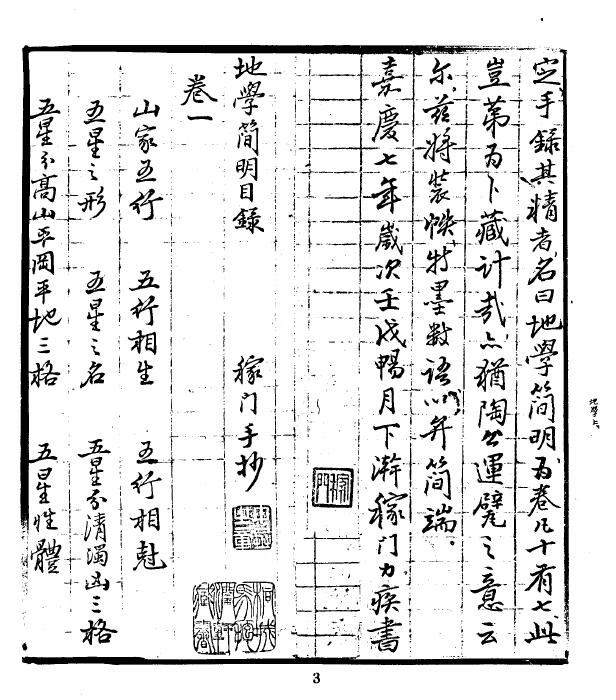 定手錄其精者名曰地學简明为卷凡十有七此
豈第为卜藏計哉亦猶陶公運甓之意云
尔兹将装帙特墨数语以弁简端
嘉慶七年歲次壬戌暢月下澣稼门力疾書
稼門
地學简明目錄 稼门手抄
卷一
山家五行 五行相生 五行相尅
五星之形 五星之名 五星分清濁凶三格
五星分髙山平岡平地三格 五星性體
地學上
3